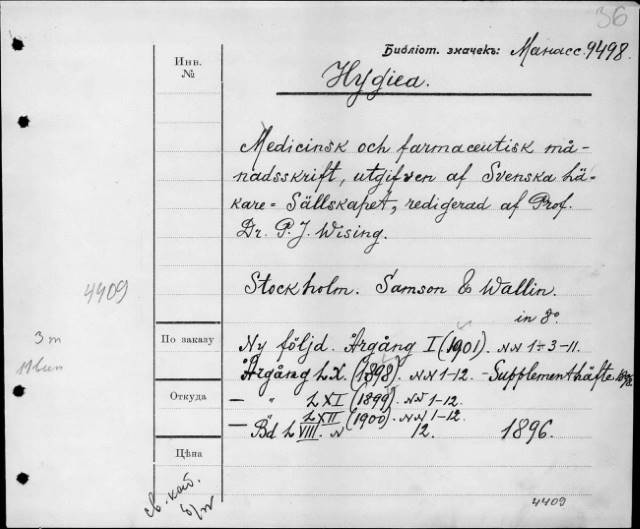 36
Библіот. значекъ: Манасс. 9498.
Инв.
№
Hygiea.
Medicinsk och farmaceutisk må-
nadsskrift, utgifven af Svenska Lä-
kare-Sällskapet, redigerad af Prof.
Dr. P. J. Wising.
4409
Stockholm. Samson & Wallin.
in 8°
3 m
По заказу
Ny följd. Årgång I (1901). NN 1-3-11.
Årgång LX. (1898). NN 1-12. - Supplementhäfte
Откуда
— " LXI (1899). NN 1-12.
— " LXII (1900). NN 1-12.
Bd LVIII. N 12. 1896.
Цѣна
св. каб.
4409